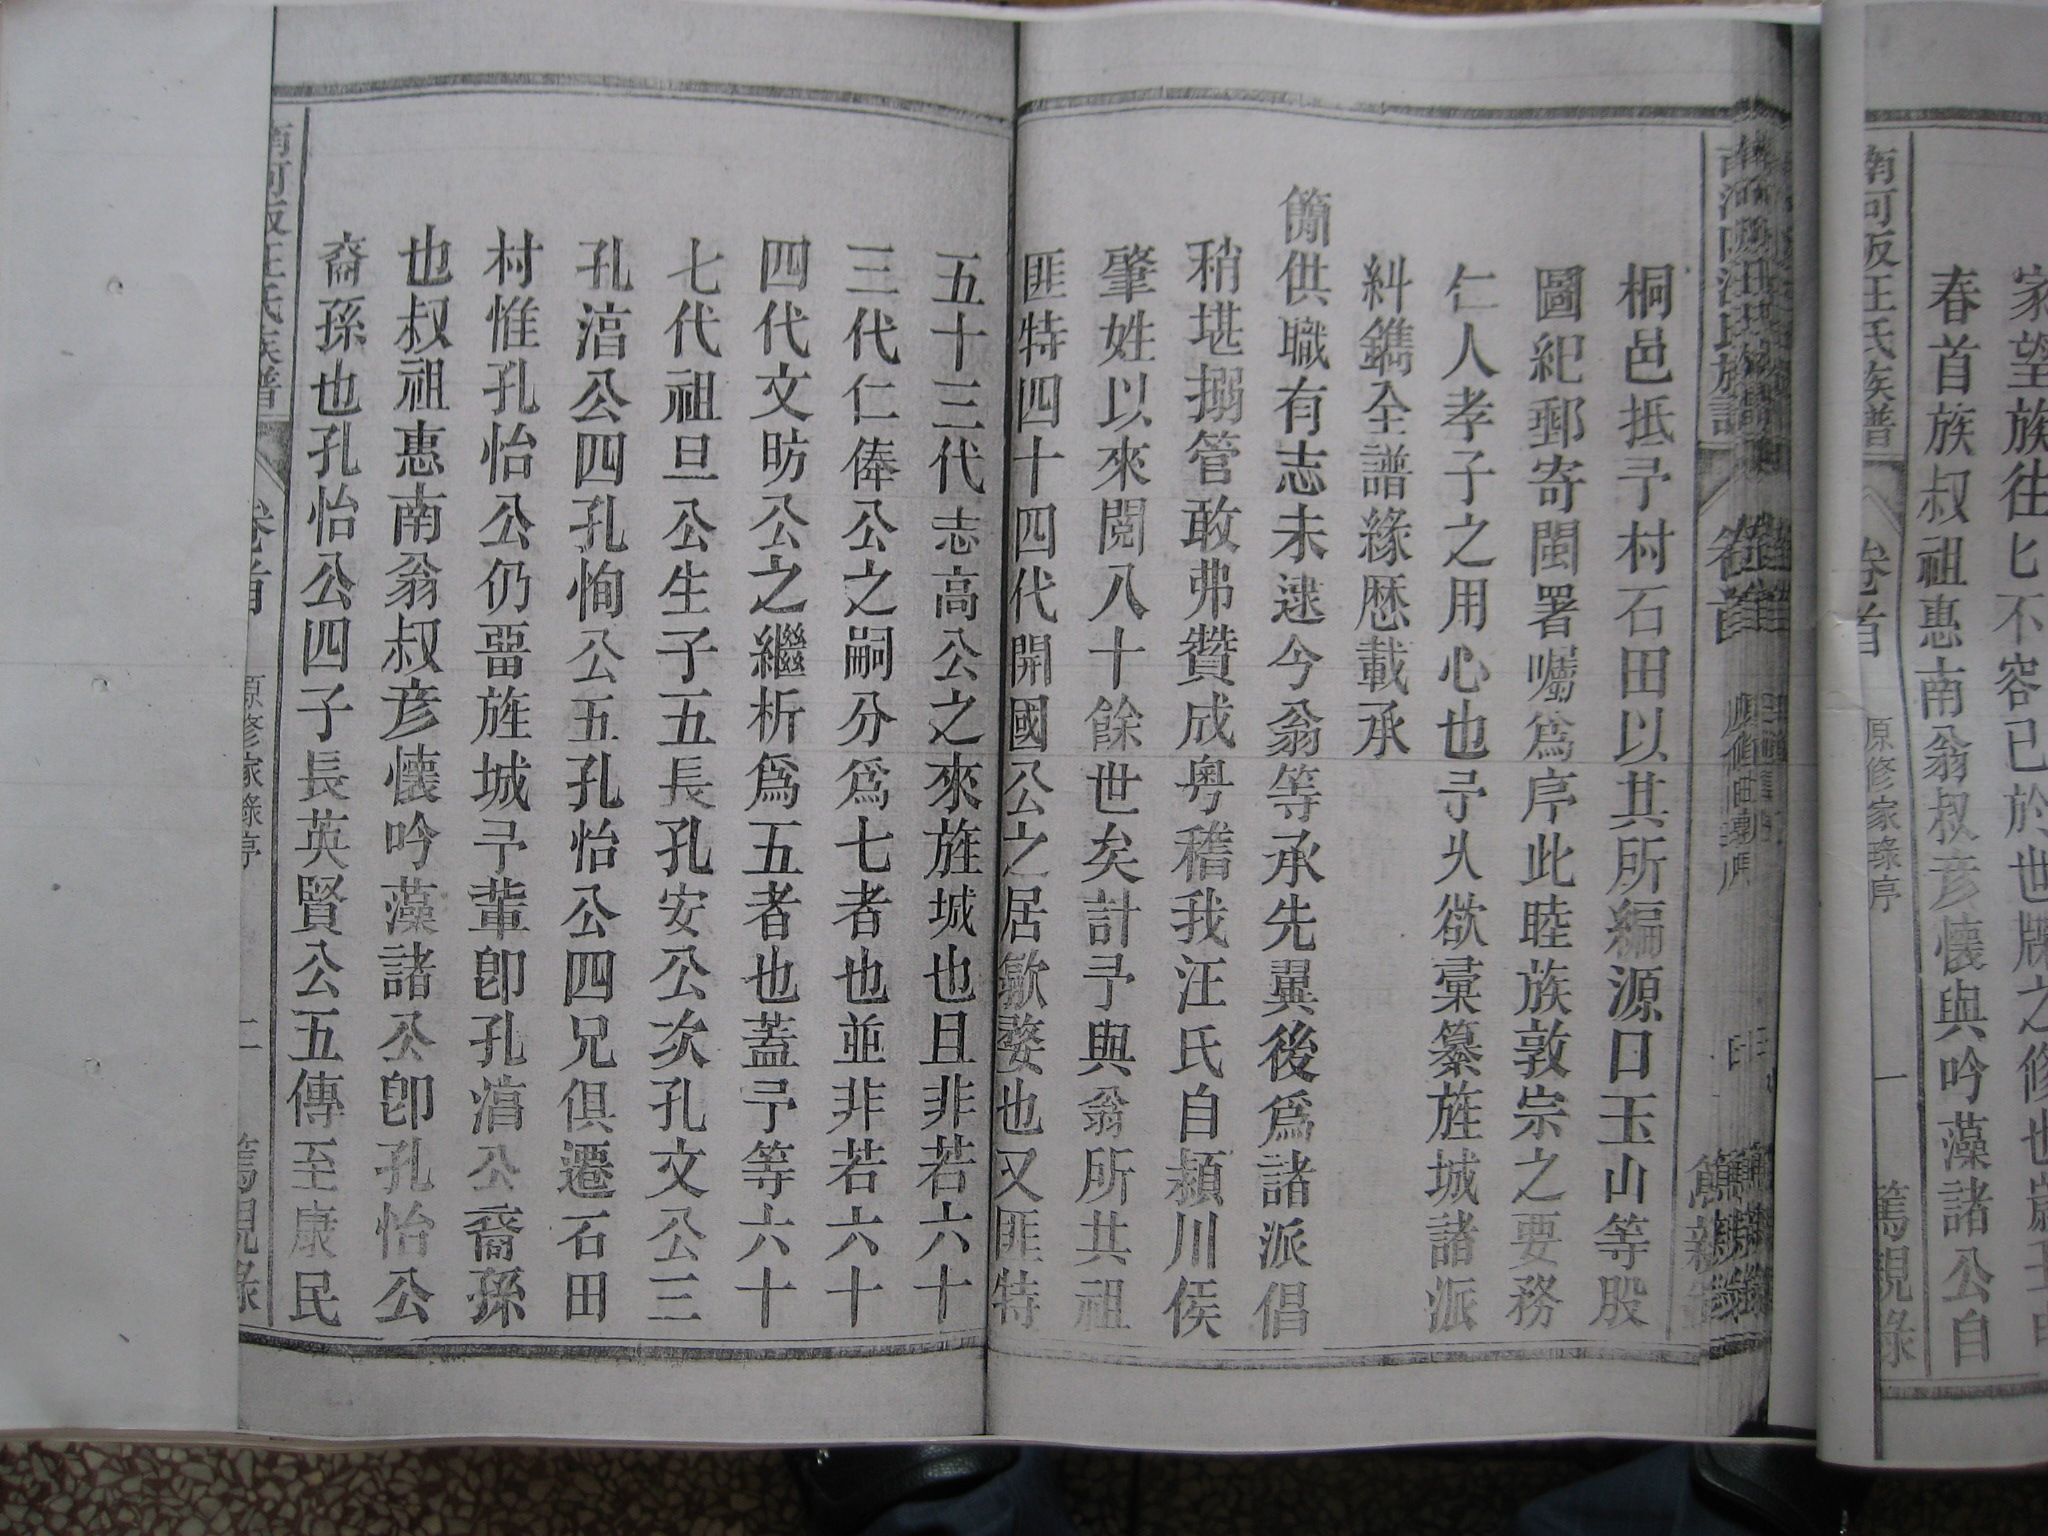 家望族往匕不容已於世牒之修也歲壬申
春首族叔祖惠南翁叔彦懷與吟藻諸公自
南河版汪氏族譜
卷首
原修家錄序
一
篤親錄
桐邑抵予村石田以其所編源日玉山等股
圖紀郵寄閩署囑爲序此睦族敦宗之要務
仁人孝子之用心也予乆欲彙纂旌城諸派
糾鐫全譜緣歷載承
簡供職有志未逮今翁等承先翼後爲諸派倡
稍堪搦管敢弗贊成粤稽我汪氏自潁川侯
肇姓以來閱八十餘世矣計予與翁所共祖
匪特四十四代開國公之居歙婺也又匪特
五十三代志高公之來旌城也且非若六十
三代仁俸公之嗣分爲七者也並非若六十
四代文昉公之繼析爲五者也蓋予等六十
七代祖旦公生子五長孔安公次孔文公三
孔湻公四孔恂公五孔怡公四兄俱遷石田
村惟孔怡公仍畱旌城予輩卽孔湻公裔孫
也叔祖惠南翁叔彦懷吟藻諸公卽孔怡公
裔孫也孔怡公四子長英賢公五傳至康民
南河版汪氏族譜
卷首
原修家錄序
二
篤親錄